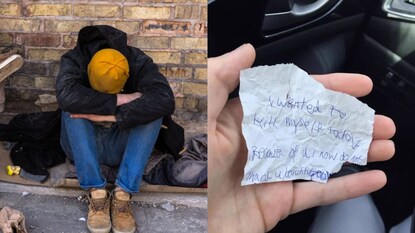 I wanted to
kill myself today
Because of u I now do not
thank u